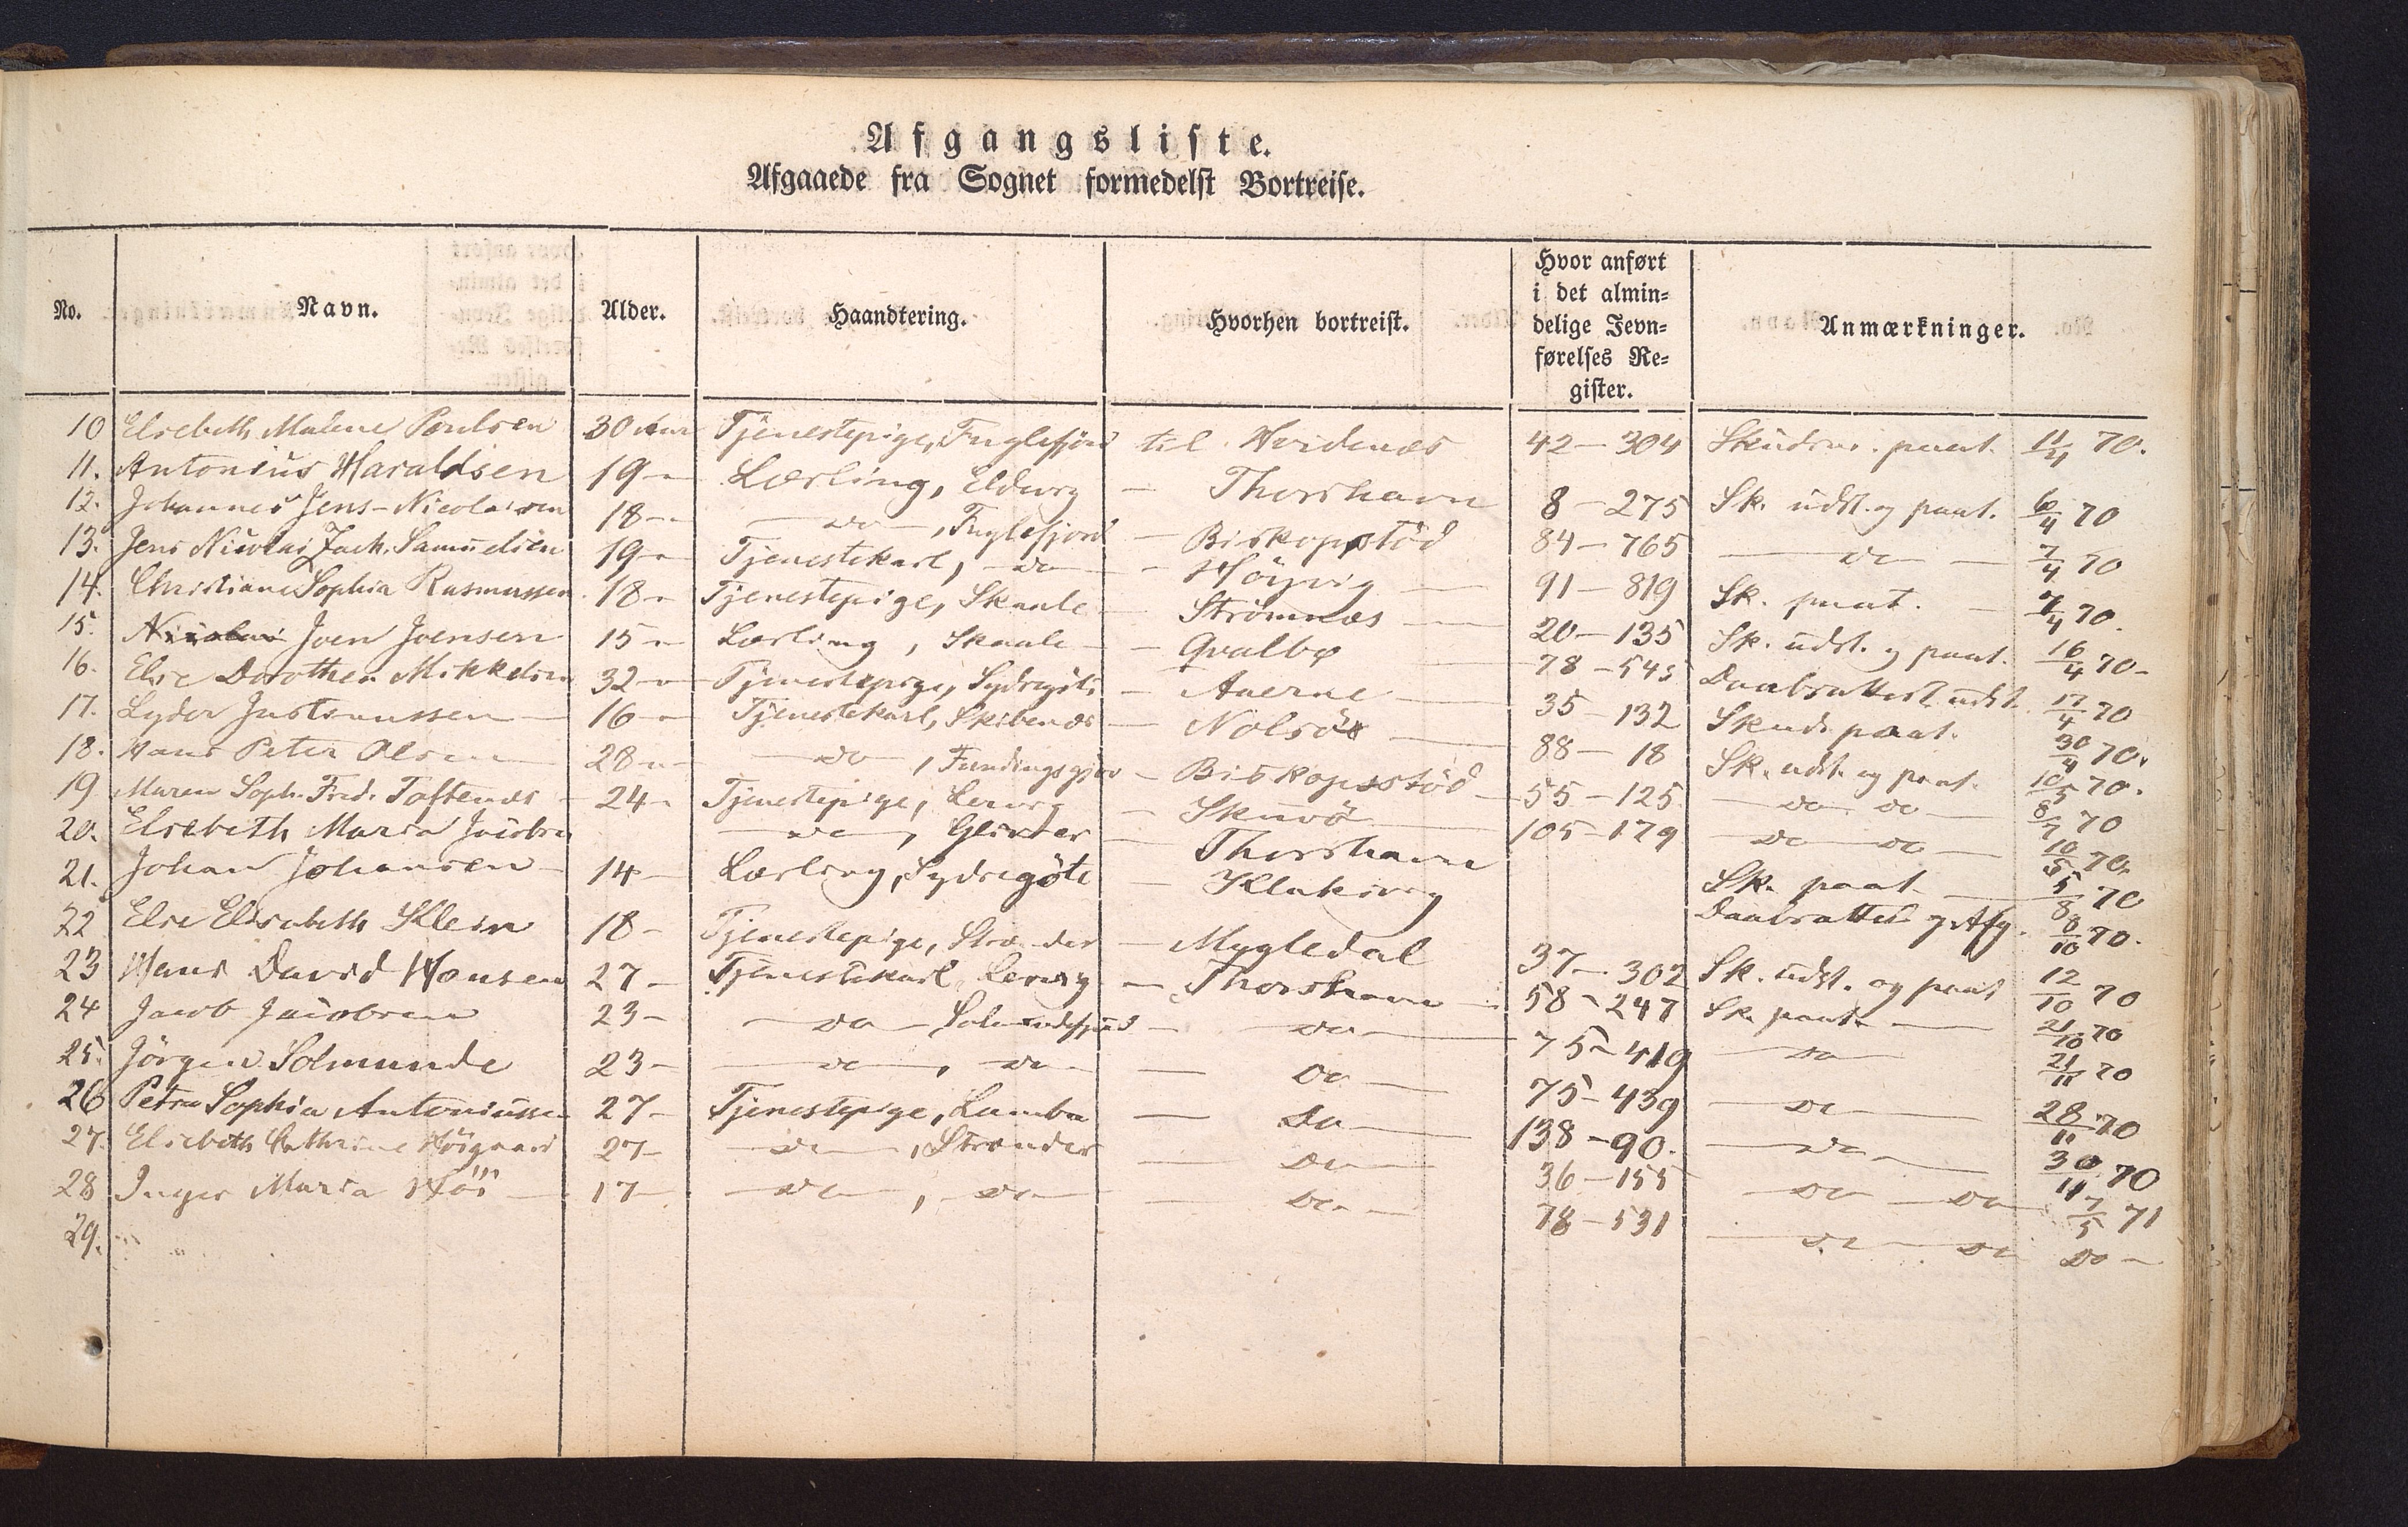 Afgangsliste.
Afgaaede fra Sognet formedelst Bortreise.
No. Navn. Alder. Haandtering. Hvorhen bortreist. Hvor anført i det almin= delige Jevn= førelses Re= gister. Anmærkninger.
10 Elsebeth Malene Poulsen 30 Aar Tjenestepige, Fuglefjord til Hvidenæs 42 — 304 paat. 11/4 70.
11. Antonius Haraldsen 19 — Lærling, Eldevig — Thorshavn 8 — 275 Sk. udst. og paat. 6/4 70
12. Johannes Jens-Nicolaisen 18 — — do —, Fuglefjord — Biskopstöd 84 — 765 — do — 7/4 70
13. Jens Nicolai Zach. Samuelsen 19 — Tjenestekarl, — do — — Höyvig — 91 — 819 Sk. paat. — 7/4 70.
14. Christiane Sophia Rasmussen 18 — Tjenestepige, Skaale — Strömnæs — 20 — 135 Sk. udst. og paat. 16/4 70 -
15. Nicolai Joen Joensen 15 — Lærling, Skaale — Qvalbø — 78 — 545 Daabsattest udst. 17/4 70
16. Else Dorothea Mikkelsen 32 — Tjenestepige, Sydregöte — Auerne — 35 — 132 Skuds. paat. 30/4 70.
17. Lyder Justinussen — 16 — Tjenestekarl, Skibenæs — Nolsö — 88 — 18 Sk. udst. og paat. 10/5 70.
18. Hans Peter Olsen — 28 — — do —, Fundingsgjov — Biskopsstöd — 55 — 125 — do do — 8/7 70
19 Maren Soph. Fred. Toftenæs — 24 — Tjenestepige, Lervig — Skuvö — 105 — 179 — do — do — 10/5 70.
20. Elsebeth Maria Jacobsen — do —, Gliver — Thorshavn Sk. paat. — 5/8 70
21. Johan Johansen — 14 — Lærling, Sydregöte — Klaksvig Daabsattest og Afg. 8/10 70.
22 Else Elisabeth Klein 18 — Tjenestepige, Strænder — Mygledal 37 — 302 Sk. udst. og paat 12/10 70
23 Hans David Hansen 27 — Tjenestekarl, Lervig — Thorshavn — 58 — 247 Sk. paat. — 21/10 70
24 Jacob Jacobsen 23 — — do — Solmundefjord — do — 75 — 419 — do — 21/11 70
25. Jörgen Solmunde 23 — — do —, do — — Do — 75 — 439 — do — 28/11 70
26 Petra Sophia Antoniussen 27 — Tjenestepige, Lamba — Do — 138 — 90. — do — 30/11 70
27. Elsebeth Cathrine Höigaard 27 — — do —, Strænder — Do — 36 — 155 — do — do — 7/5 71
28 Inger Maria Höi — 17 — — do —, — do — — Do — 78 — 531 — do — do Do —
29. " "